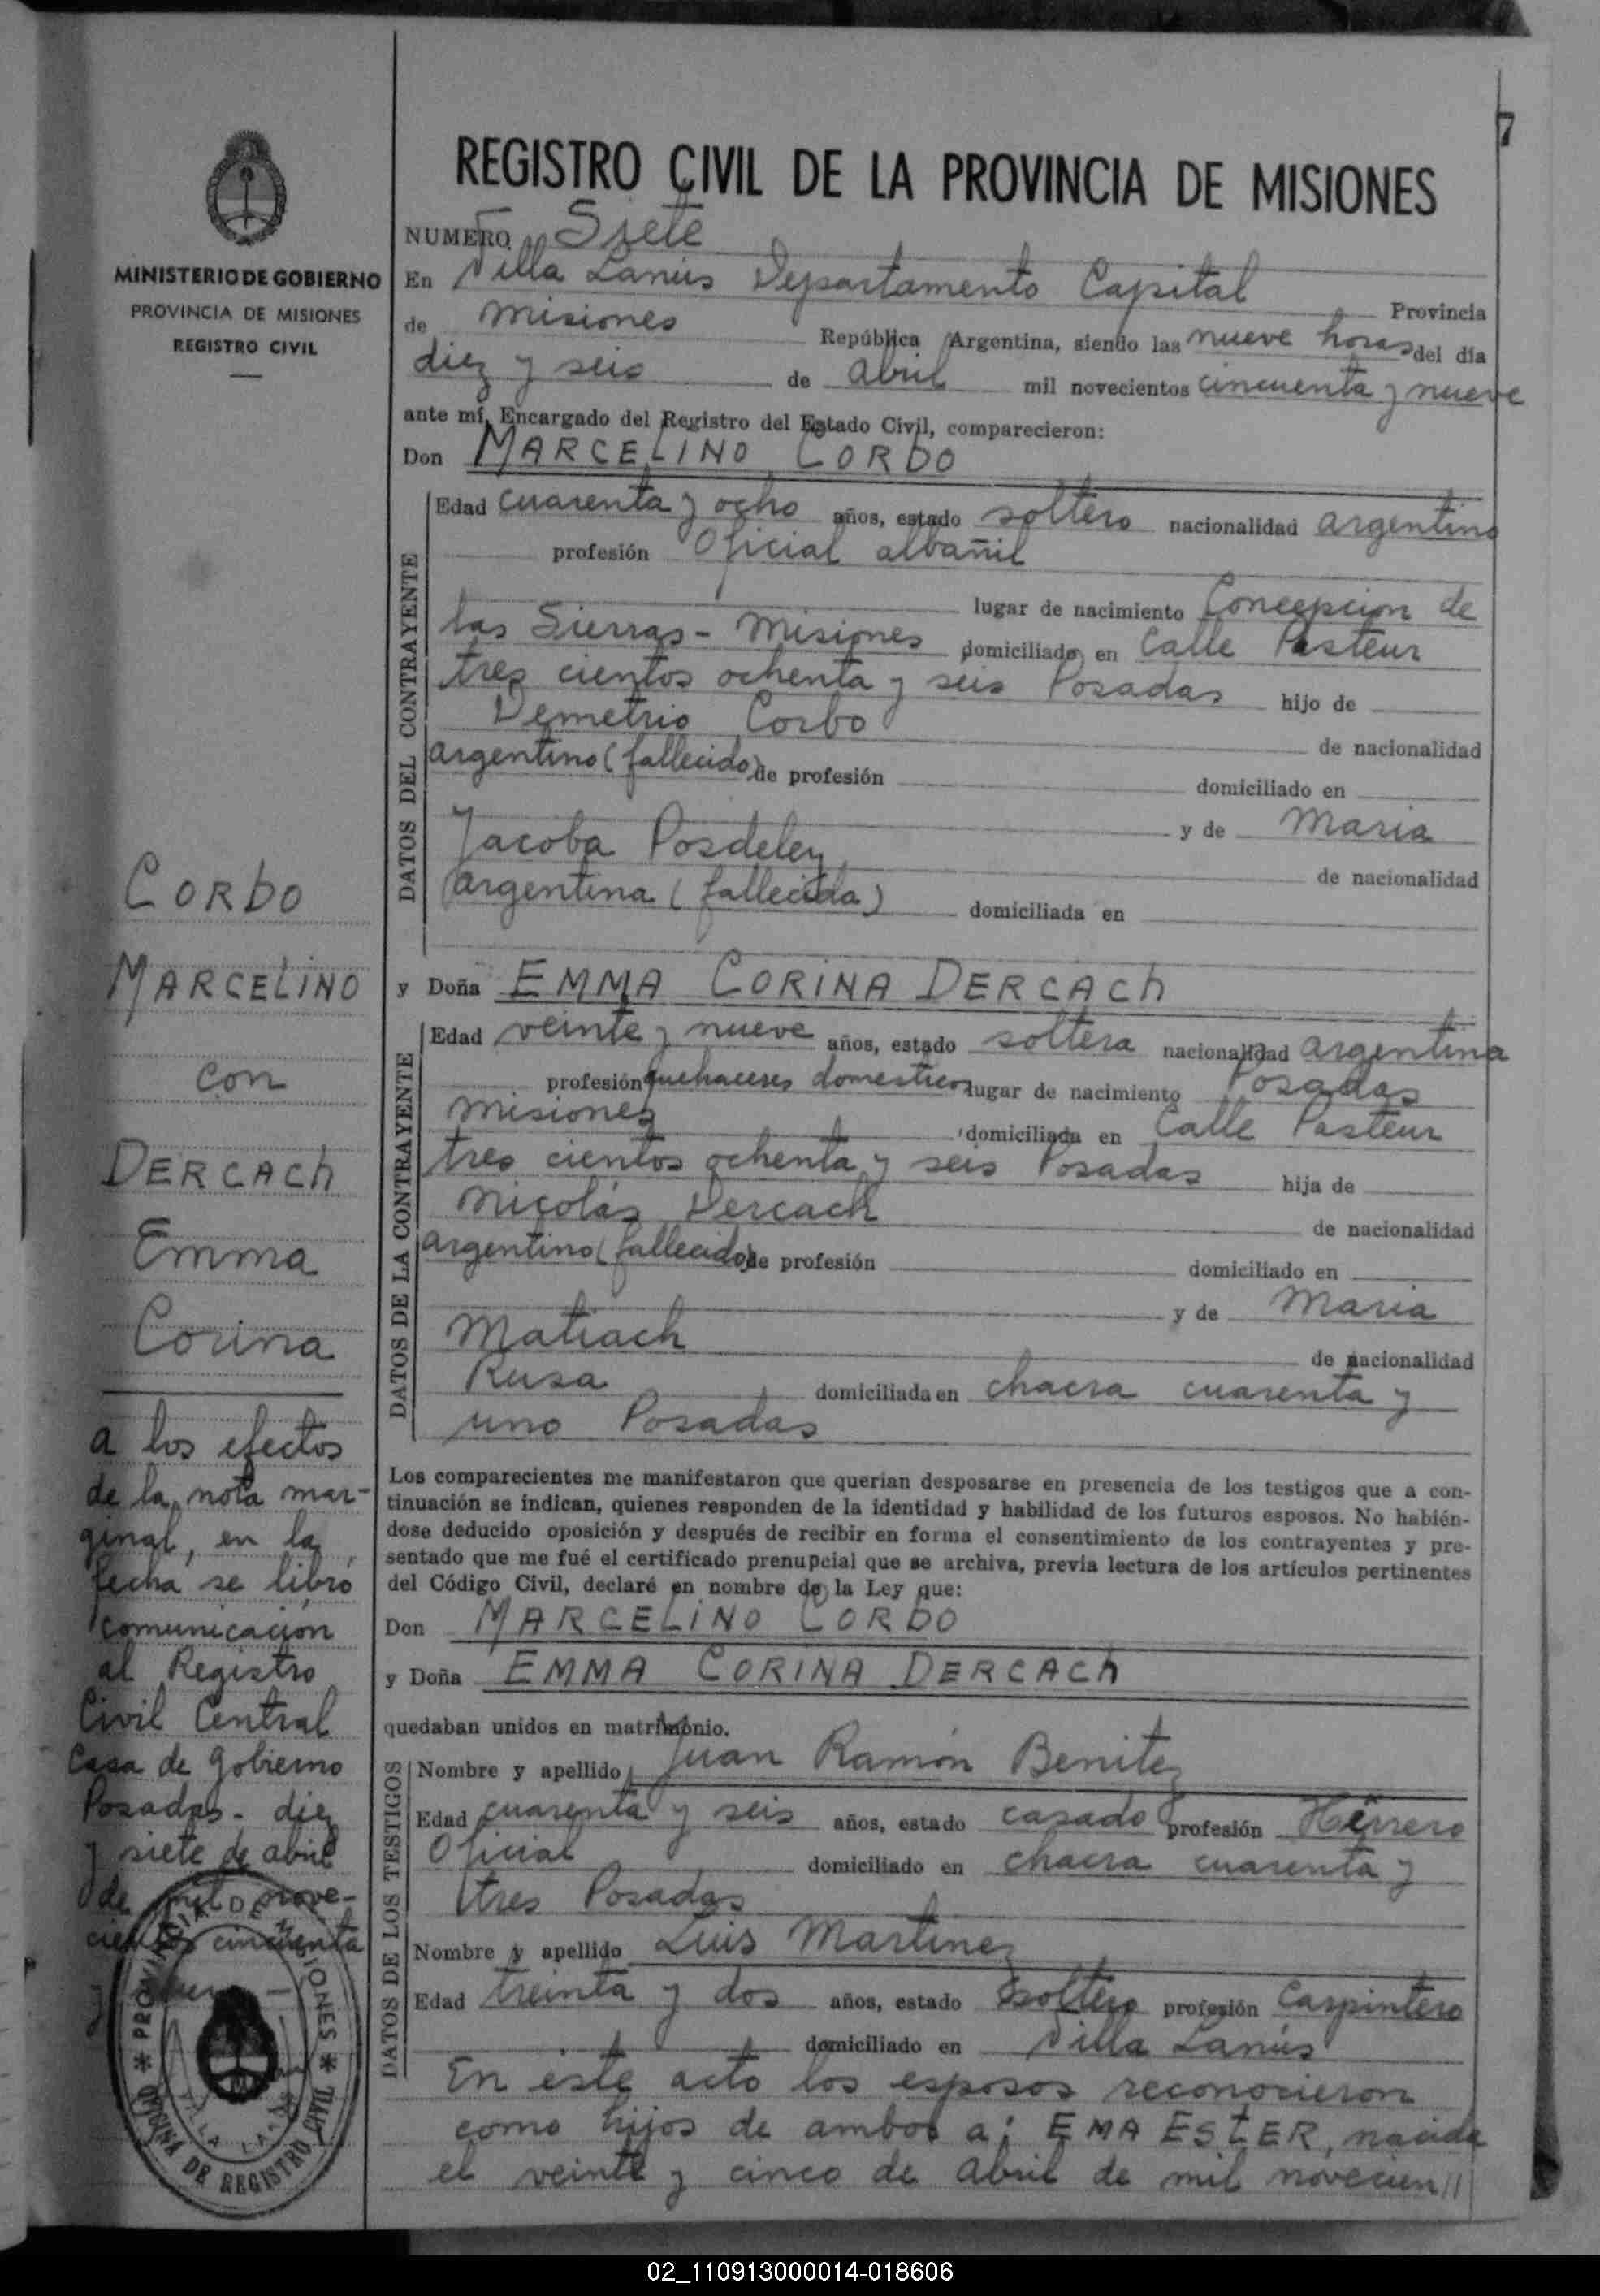 7
REGISTRO CIVIL DE LA PROVINCIA DE MISIONES
MINISTERIO DE GOBIERNO
PROVINCIA DE MISIONES
REGISTRO CIVIL
NUMERO Siete
En Villa Lanús Departamento Capital Provincia
de Misiones República Argentina, siendo las nueve horas del día
diez y seis de abril mil novecientos cincuenta y nueve
ante mí, Encargado del Registro del Estado Civil, comparecieron:
Don MARCELINO CORDO
DATOS DEL CONTRAYENTE
Edad cuarenta y ocho años, estado soltero nacionalidad argentino
profesión Oficial albañil
lugar de nacimiento Concepcion de
las Sierras - Misiones domiciliado en Calle Pasteur
tres cientos ochenta y seis Posadas hijo de
Demetrio Corbo de nacionalidad
argentino (fallecido) de profesión domiciliado en
y de Maria
Jacoba Posdeley de nacionalidad
argentina (fallecida) domiciliada en
y Doña EMMA CORINA DERCACH
DATOS DE LA CONTRAYENTE
Edad veinte y nueve años, estado soltera nacionalidad argentina
profesión quehaceres domesticos lugar de nacimiento Posadas
Misiones domiciliada en Calle Pasteur
tres cientos ochenta y seis Posadas hija de
Nicolás Dercach de nacionalidad
argentino (fallecido) de profesión domiciliado en
y de Maria
Matiach de nacionalidad
Rusa domiciliada en chacra cuarenta y
uno Posadas
Los comparecientes me manifestaron que querían desposarse en presencia de los testigos que a con-
tinuación se indican, quienes responden de la identidad y habilidad de los futuros esposos. No habién-
dose deducido oposición y después de recibir en forma el consentimiento de los contrayentes y pre-
sentado que me fué el certificado prenupcial que se archiva, previa lectura de los artículos pertinentes
del Código Civil, declaré en nombre de la Ley que:
Don MARCELINO CORDO
y Doña EMMA CORINA DERCACH
quedaban unidos en matrimonio.
DATOS DE LOS TESTIGOS
Nombre y apellido Juan Ramón Benitez
Edad cuarenta y seis años, estado casado profesión Herrero
Oficial domiciliado en chacra cuarenta y
tres Posadas
Nombre y apellido Luis Martinez
Edad treinta y dos años, estado soltero profesión Carpintero
domiciliado en Villa Lanús
En este acto los esposos reconocieron
como hijos de ambos a: EMA ESTER, nacida
el veinte y cinco de abril de mil novecien//
CORDO
MARCELINO
con
DERCACH
Emma
Corina
a los efectos
de la nota mar-
ginal, en la
fecha se libró
comunicación
al Registro
Civil Central
Casa de Gobierno
Posadas - diez
y siete de abril
de mil nove-
cientos cincuenta
y
PROVINCIA DE MISIONES
OFICINA DE REGISTRO CIVIL
VILLA LANUS
02_110913000014-018606